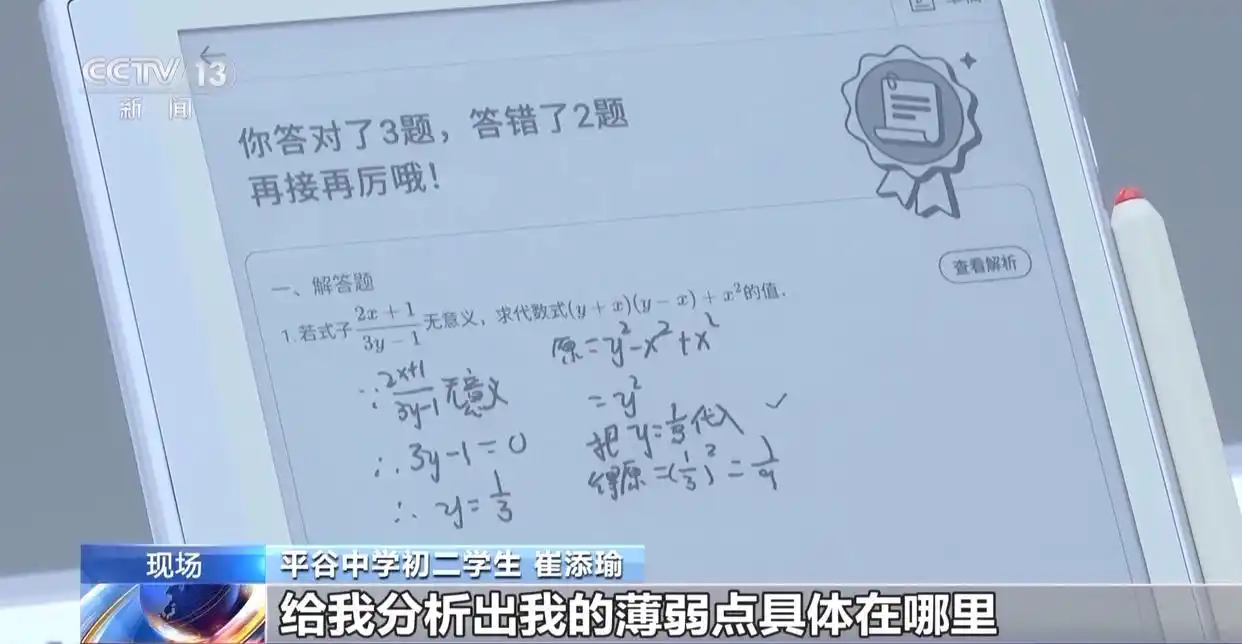 CCTV 13
新 闻
你答对了3题，答错了2题
再接再厉哦！
一、解答题
查看解析
1.若式子(2x+1)/(3y-1)无意义，求代数式(y+x)(y-x)+x²的值.
∵ (2x+1)/(3y-1) 无意义
∴ 3y-1=0
∴ y=1/3
原=y²-x²+x²
=y²
把 y=1/3 代入
得原=(1/3)²=1/9
现场
平谷中学初二学生 崔添瑜
给我分析出我的薄弱点具体在哪里